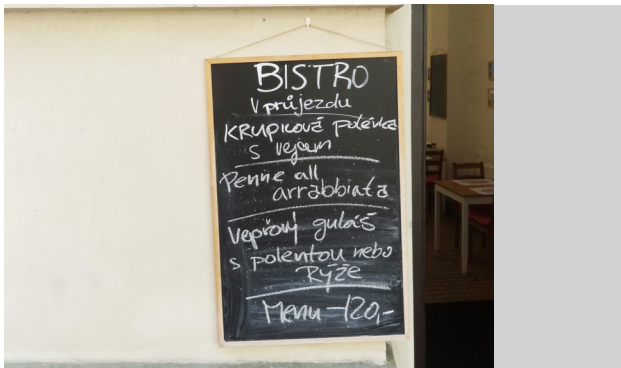 BISTRO
V průjezdu
KRUPICOVÁ POLÉVKA
S vejcem
Penne all
arrabbiata
Vepřový guláš
s polentou nebo
Rýže
Menu -120,-